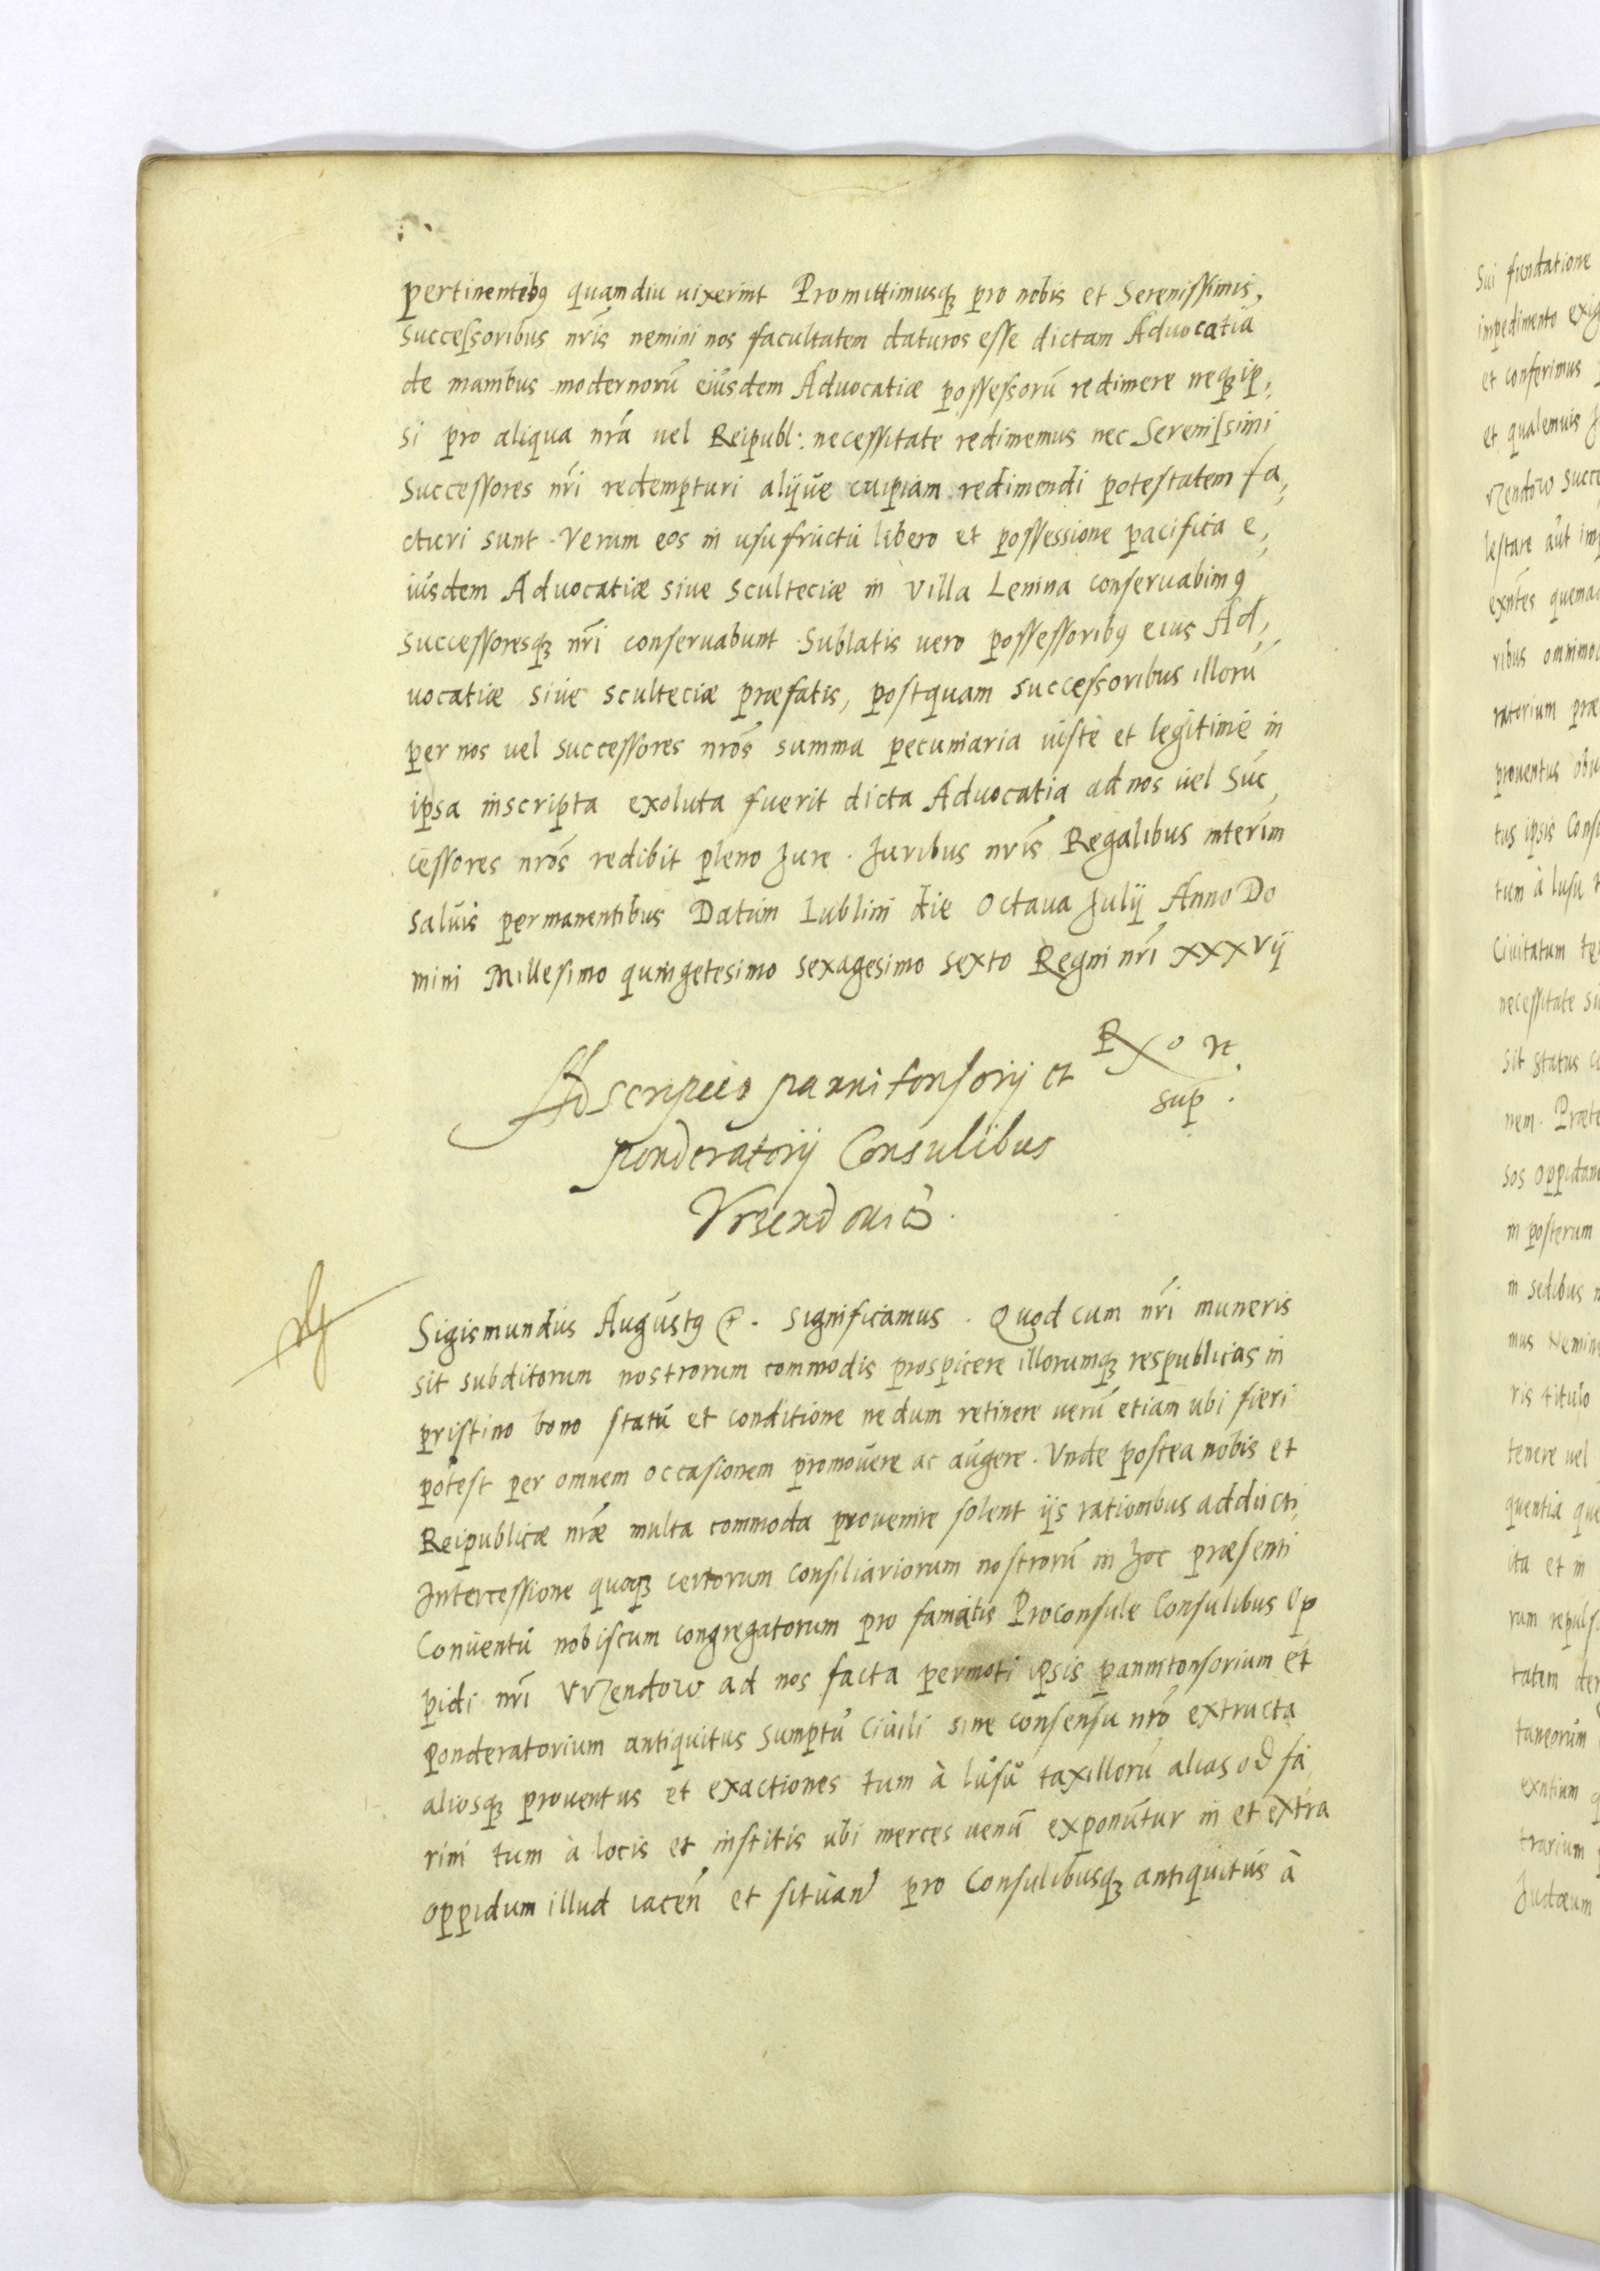 pertinentibꝰ quamdiu uixerint Promittimusqꝫ pro nobis et Serenissimis,
Successoribus nr̃is nemini nos facultatem daturos esse dictam Aduocatiã
de manibus modernorũ eiusdem Aduocatiæ possessorũ redimere neqꝫ ip,
si pro aliqua nrã uel Reipubl: necessitate redimemus nec Serenissimi
Successores nr̃i redempturi alijue cuipiam redimendi potestatem fa,
cturi sunt. Verum eos in usufructu libero et possessione pacifica e,
iusdem Aduocatiæ siue Sculteciæ in Villa Lenina conseruabimꝰ
Successoresqꝫ nr̃i conseruabunt. Sublatis uero possessoribꝰ eius Ad,
uocatiæ siue sculteciæ præfatis, postquam successoribus illorũ
per nos uel successores nrõs summa pecuniaria iustè et legitimè in
ipsa inscripta exoluta fuerit dicta Aduocatia ad nos uel Suc,
cessores nrõs redibit pleno Jure. Juribus nr̃is Regalibus interim
saluis permanentibus Datum Lublini die Octaua Julij Anno Do
mini Millesimo quingetesimo sexagesimo sexto Regni nr̃i XXXVij
Adscripcio pannitonsorij et
ponderatorij Consulibus
Vrzendouiẽ.
sup.
Sigismundus Augustꝰ &. Significamus. Quod cum nr̃i muneris
sit subditorum nostrorum commodis prospicere illorumqꝫ respublicas in
pristino bono statu et conditione nedum retinere uerũ etiam ubi fieri
potest per omnem occasionem promouere ac augere. Vnde postea nobis et
Reipublicæ nræ̃ multa commoda prouenire solent ijs rationibus adducti,
Intercessione quoqꝫ certorum consiliariorum nostrorũ in hoc præsenti
Conuentu nobiscum congregatorum pro famatis Proconsule Consulibus Op
pidi nr̃i Vrzendow ad nos facta permoti ipsis pannitonsorium et
ponderatorium antiquitus sumptu Ciuili sine consensu nrõ extructa
aliosqꝫ prouentus et exactiones tum à lusu taxillorũ alias od fa,
rini tum à locis et institis ubi merces uenũ exponũtur in et extra
oppidum illud iaceñ et situañ pro Consulibusqꝫ antiquitus à
Sui fundatione
impedimento
et conferimus
et qualemuis
rzendow
lestare aut
quemad
ribus
ratorium præ
prouentus
tus ipsis Cons
tum à lusu
Ciuitatum
necessitate
sit status
nem. Præte
sos oppidan
in posterum
in sedibus
mus
ris titulo
tenere uel
quentia que
ita et in
rum repuls
tatem der
taneorum
trarium
Judæum